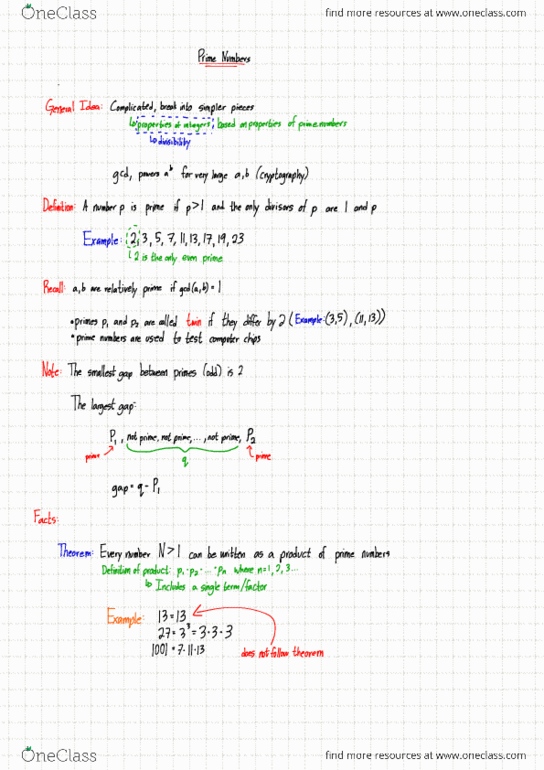 OneClass
find more resources at www.oneclass.com
Prime Numbers
General Idea: Complicated, break into simpler pieces
↳ properties of integers, based on properties of prime numbers
↳ divisibility
gcd, powers a^b for very large a,b (cryptography)
Definition: A number p is prime if p>1 and the only divisors of p are 1 and p
Example: 2, 3, 5, 7, 11, 13, 17, 19, 23
2 is the only even prime
Recall: a,b are relatively prime if gcd(a,b)=1
• primes p₁ and p₂ are called twin if they differ by 2 (Example: (3,5), (11,13))
• prime numbers are used to test computer chips
Note: The smallest gap between primes (odd) is 2
The largest gap:
P₁, not prime, not prime, ..., not prime, P₂
prime
q
prime
gap = q - P₁
Facts:
Theorem: Every number N>1 can be written as a product of prime numbers
Definition of product: p₁·p₂·...·pₙ where n=1, 2, 3...
↳ Includes a single term/factor
Example: 13=13
27=3³=3·3·3
1001=7·11·13
does not follow theorem
OneClass
find more resources at www.oneclass.com